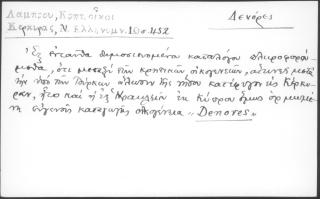 Λάμπρου, Κερκ. οἶκοι
Κερκύρας, Ν. Ἑλληνομν. 10ος 452
Δενόρες
Ἐξ ἐνταῦθα δημοσιευομένου καταλόγου πληροφορού-
μεθα, ὅτι μεταξὺ τῶν κρητικῶν οἰκογενειῶν, αἵτινες μετὰ
τὴν ὑπὸ τῶν Τούρκων ἅλωσιν τῆς νήσου κατέφυγον εἰς Κέρκυ-
ραν, ἦτο καὶ ἡ ἐξ Ἡρακλείου ἐκ Κύπρου ὅμως ὁρμωμέ-
νη εὐγενὴς καταγωγῆς οἰκογένεια "Denores"